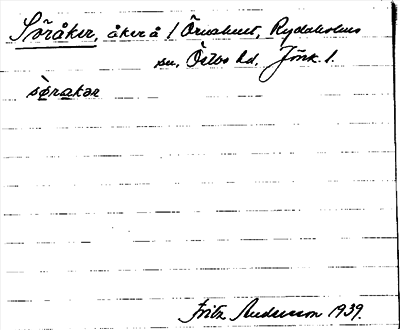 Söråker, åker å / Örnahult, Rydaholms
sn, Östbo hd, Jönk. l.
sø̀rakər
Fritz Andersson 1939.